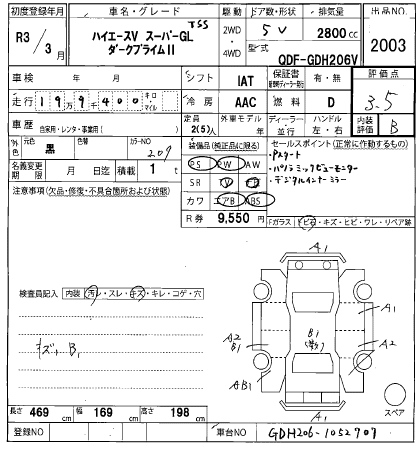 初度登録年月 車名・グレード 駆動 ドア数・形状 排気量 出品NO.
R3 / 3月 ハイエースV スーパーGL TSS
ダークプライムⅡ 2WD ・ 4WD 5 V 2800cc 2003
型式 QDF-GDH206V
車検 年 月 シフト IAT 保証書 有・無 評価点
走行 1 9 万 9 千 4 0 0 キロ・マイル 冷房 AAC 燃料 D 3.5
車歴 自家用・レンタ・事業用( ) 定員 2(5)人 外車モデル 年 ディーラー・並行 ハンドル 左・右 内装評価 B
外色 元色 黒 色替 カラーNO 209
名義変更期限 月 日迄 積載 1 t
装備品(純正品に限る) セールスポイント(正常に作動するもの)
PS PW AW ・Pスタート
SR ・パノラミックビューモニター
カワ エアB ABS ・デジタルインナーミラー
注意事項(欠品・修復・不具合箇所および状態)
R券 9,550円 Fガラス(ヒ石・キズ・ヒビ・ワレ・リペア跡)
検査員記入 内装(汚レ・スレ・キズ・キレ・コゲ・穴)
キズ、B1
A1
A1
A2
B1
B1
A2
AB1
A1
スペア
長さ 469cm 幅 169cm 高さ 198cm
登録NO 車台NO GDH206-1052707